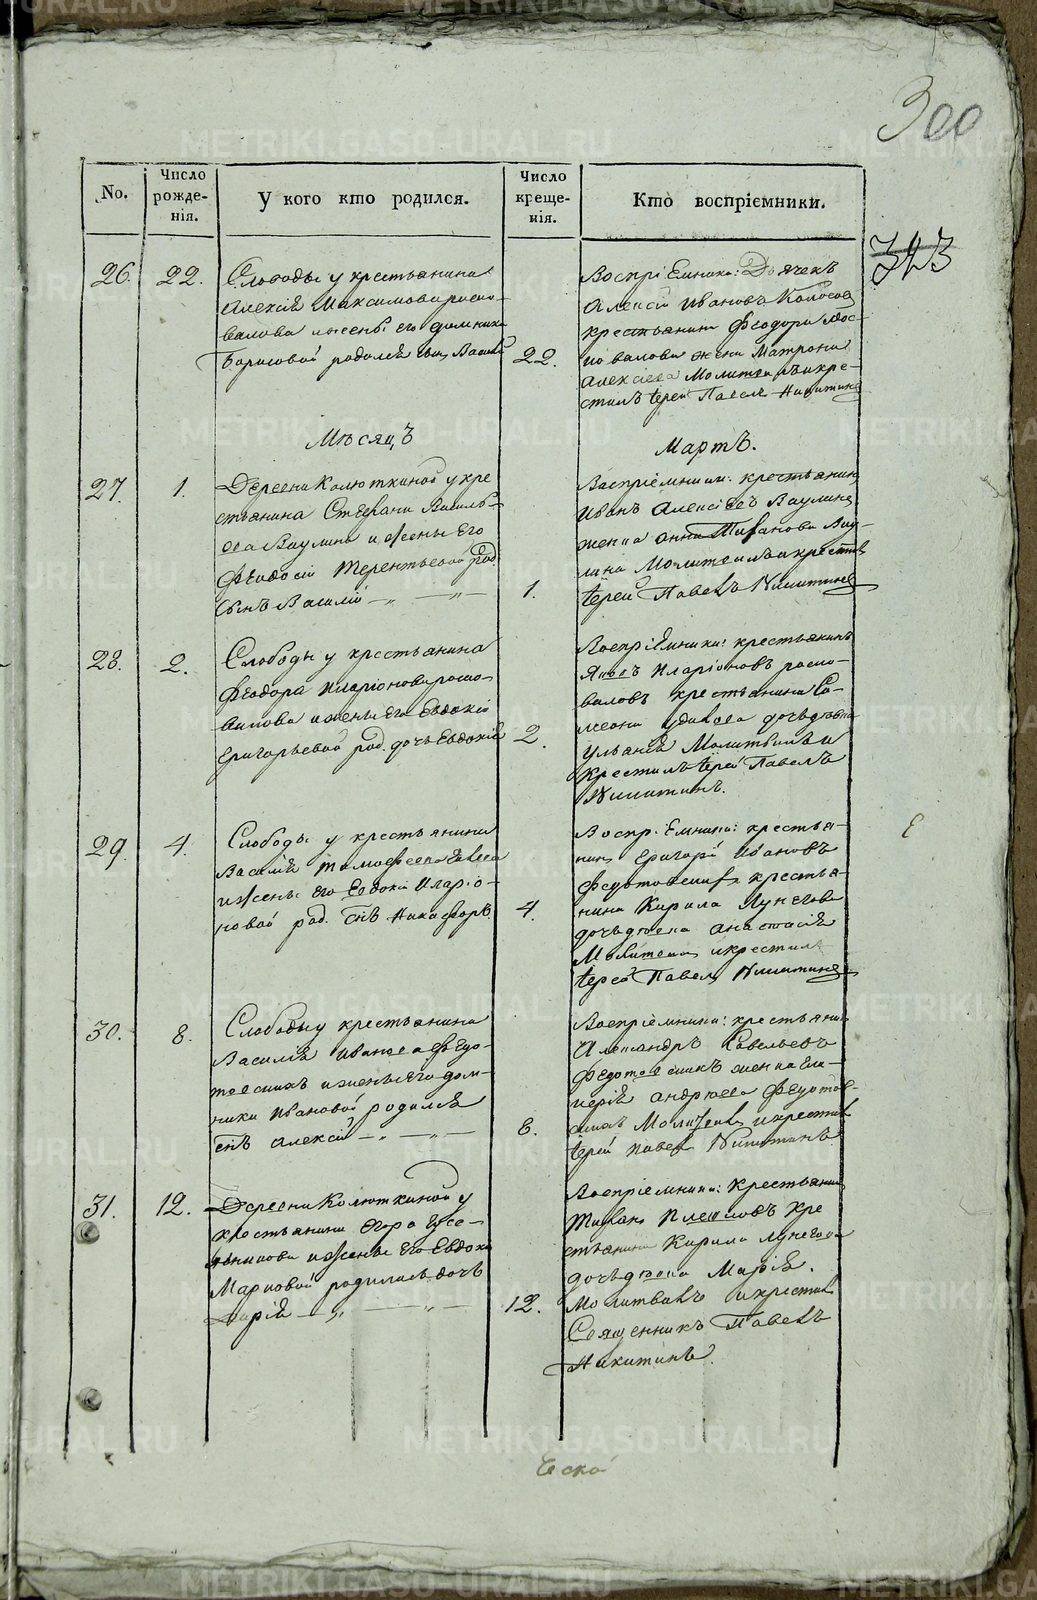 300
343
No.
Число рожде-нія.
У кого кто родился.
Число креще-нія.
Кто воспріемники.
26.
22.
Слободы у крестьянина
Алексія Максимова роспо-
валова и жены его Домники
Борисовой родился сынъ Васил
22.
Воспріемники: Дьячекъ
Алексій Ивановъ Колосовъ
крестьянина Феодора
валова жена Матрона
Алексіева Молитвилъ и кре-
стилъ Іерей Павелъ Никитинъ
Мѣсяцъ
Мартъ.
27.
1.
Деревни Колюткиной у кре
стьянина Стефана Василь-
ева Ваулина и жены Его
Феодосіи Терентьевой род.
Сынъ Василій
1.
Воспріемники: крестьянинъ
Иванъ Алексіевъ Ваулинъ
женка Анна Вау-
лина Молитвилъ и крестилъ
Іерей Павелъ Никитинъ
28.
2.
Слободы у крестьянина
Феодора Иларіонова роспо-
валова и жены Его Евдокіи
Григорьевой род. дочь Евдокія
2.
Воспріемники: крестьянинъ
Яковъ Иларіоновъ роспо-
валовъ крестьянина Си-
меона дочь дѣвка
Ульянія Молитвилъ и
Крестилъ Іерей Павелъ
Никитинъ.
29.
4.
Слободы у крестьянина
Василія Тимофеева
и жены Его Евдокіи Иларіо-
новой род. сынъ Никифоръ
4.
Воспріемники: крестья-
нинъ Григорій Ивановъ
Федотовскихъ крестья-
нина Кирила Лунегова
дочь дѣвка Анастасія
Молитвилъ и крестилъ
Іерей Павелъ Никитинъ
30.
8.
Слободы у крестьянина
Василія Иванова Федо-
товскихъ и жены Его Дом-
ники Ивановой родился
сынъ Алексій
8.
Воспріемники: крестьянинъ
Александръ Савельевъ
Федотовскихъ женка
Андреева Федотов-
скихъ Молитвилъ и крестилъ
Іерей Павелъ Никитинъ
31.
12.
Деревни Колюткиной у
крестьянина Егора Гусе-
льникова и жены Его Евдокіи
Марковой родилась дочь
Дарія
12.
Воспріемники: Крестьянинъ
кре
стьянина Кирила Лунегова
дочь дѣвка Марія.
Молитвилъ и крестилъ
Священникъ Павелъ
Никитинъ.
METRIKI.GASO-URAL.RU